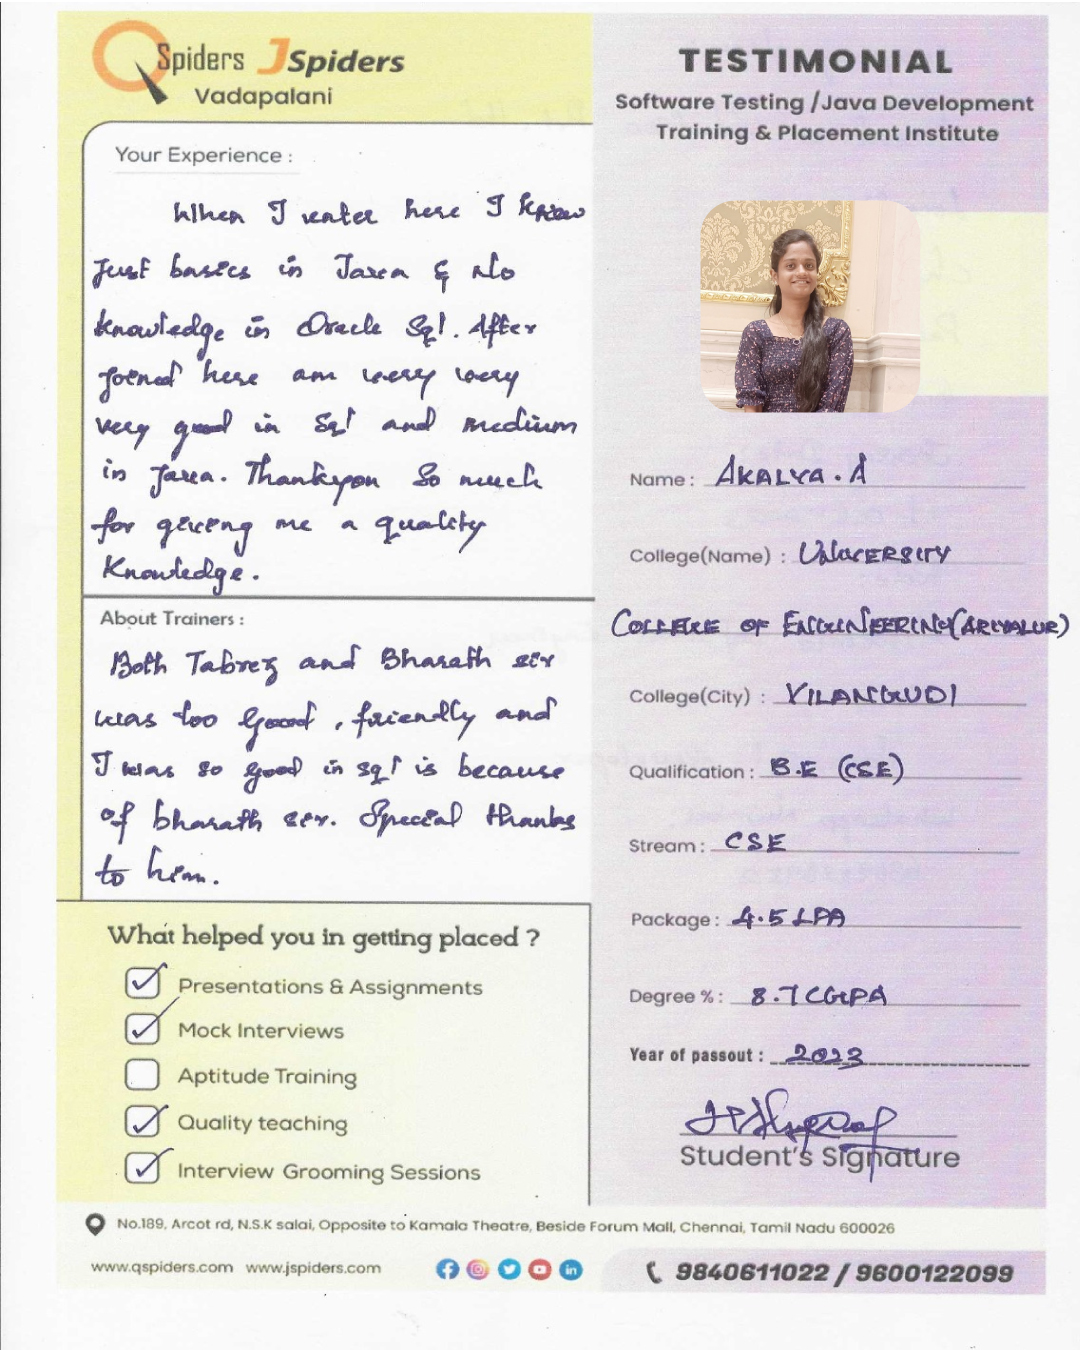 QSpiders JSpiders
Vadapalani
Your Experience :
When I enter here I know
just basics in Java & No
knowledge in Oracle Sql. After
joined here am very very
very good in Sql and medium
in Java. Thankyou So much
for giving me a quality
Knowledge.
About Trainers :
Both Tabrez and Bharath sir
was too good, friendly and
I was so good in sql is because
of bharath sir. Special thanks
to him.
What helped you in getting placed ?
Presentations & Assignments
Mock Interviews
Aptitude Training
Quality teaching
Interview Grooming Sessions
TESTIMONIAL
Software Testing /Java Development
Training & Placement Institute
Name : AKALYA . A
College(Name) : UNIVERSITY
COLLEGE OF ENGINEERING(ARIYALUR)
College(City) : VILANGUDI
Qualification : B.E (CSE)
Stream : CSE
Package : 4.5 LPA
Degree % : 8.7 CGPA
Year of passout : 2023
Student's Signature
No.189, Arcot rd, N.S.K salai, Opposite to Kamala Theatre, Beside Forum Mall, Chennai, Tamil Nadu 600026
www.qspiders.com www.jspiders.com
9840611022 / 9600122099